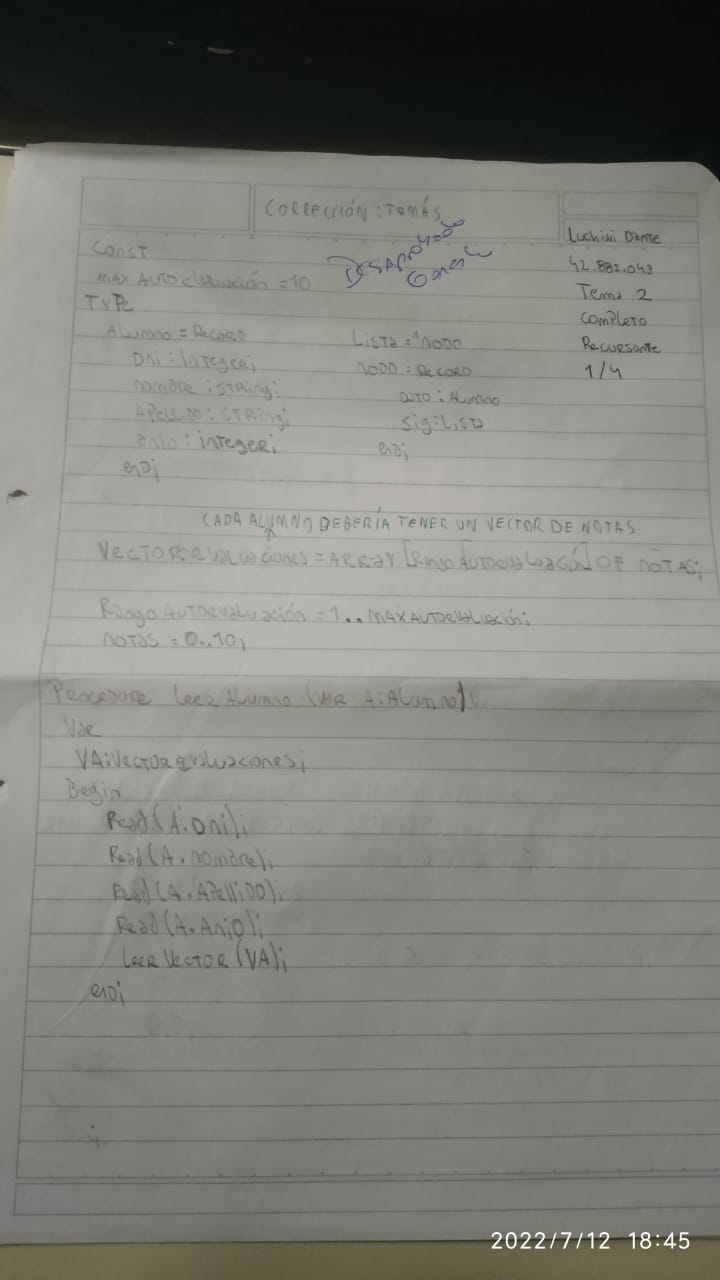 CORRECCIÓN: TOMÁS
DESAPROBADO
Luchini Dante
42.882.043
Tema 2
Completo
Recursante
1/4
Const
MAX AUTOevaluación = 10
Type
Alumno = Record
Dni: integer;
nombre: string;
Apellido: string;
anio: integer;
end;
Lista = ^nodo
nodo = Record
dato: Alumno
sig: Lista
end;
CADA ALUMNO DEBERÍA TENER UN VECTOR DE NOTAS
Vector evaluaciones = ARRAY [Rango Autoevaluación] OF NOTAS;
Rango Autoevaluación = 1..MAXAUTOevaluación;
notas = 0..10;
Procedure leer Alumno (var A: Alumno);
Var
VA: Vector evaluaciones;
Begin
Read(A.Dni);
Read(A.nombre);
Read(A.Apellido);
Read(A.Anio);
leer Vector (VA);
end;
2022/7/12 18:45